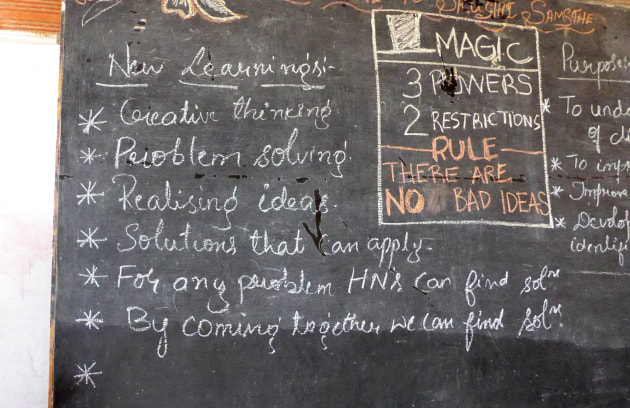 SAMSTHE
New Learnings:-
* Creative thinking
* Problem solving.
* Realising ideas.
* Solutions that can apply.
* For any problem HNs can find solⁿ.
* By coming together we can find solⁿ.
*
MAGIC
3 POWERS
2 RESTRICTIONS
RULE
THERE ARE
NO BAD IDEAS
Purpose
* To unde
of di
* To imp
* Improve
* Develop
identifi